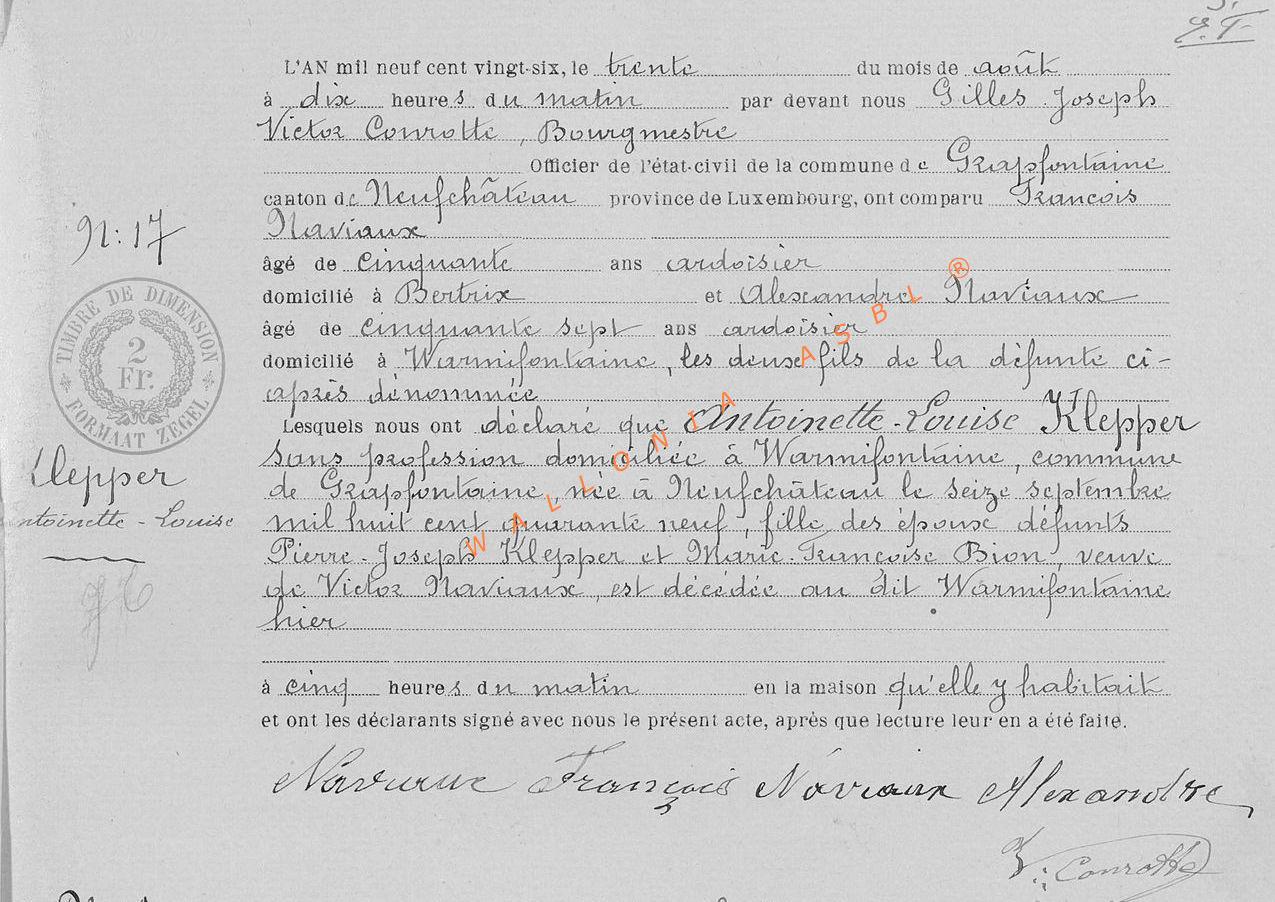 L'AN mil neuf cent vingt-six, le trente du mois de août
à dix heures du matin par devant nous Gilles Joseph
Victor Conrotte, Bourgmestre
Officier de l'état-civil de la commune de Grapfontaine
canton de Neufchâteau province de Luxembourg, ont comparu François
Naviaux
N: 17
âgé de cinquante ans ardoisier
domicilié à Bertrix et Alexandre Naviaux
âgé de cinquante sept ans ardoisier
domicilié à Warmifontaine, les deux fils de la défunte ci-
après dénommée
TIMBRE DE DIMENSION
2
Fr.
FORMAAT ZEGEL
Lesquels nous ont déclaré que Antoinette-Louise Klepper
sans profession domiciliée à Warmifontaine, commune
de Grapfontaine, née à Neufchâteau le seize septembre
mil huit cent quarante neuf, fille des époux défunts
Pierre-Joseph Klepper et Marie-Françoise Bion, veuve
de Victor Naviaux, est décédée au dit Warmifontaine
hier
Klepper
ntoinette-Louise
à cinq heures du matin en la maison qu'elle y habitait
et ont les déclarants signé avec nous le présent acte, après que lecture leur en a été faite.
Naviaux François Naviaux Alexandre
V. Conrotte
WALLONIA ASBL ®